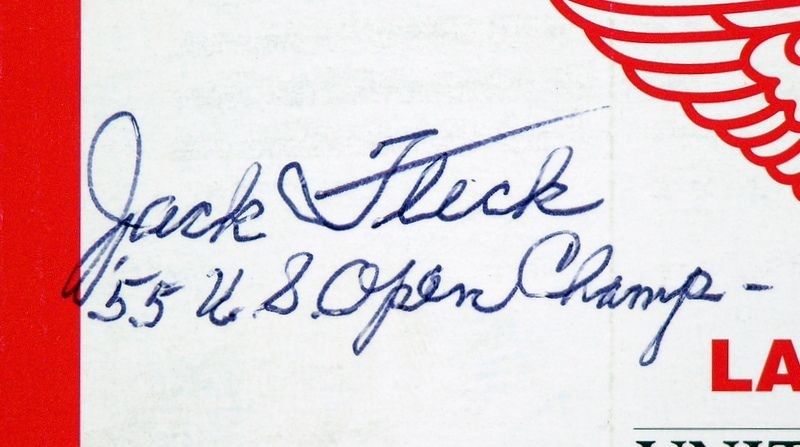 Jack Fleck
'55 U.S. Open Champ-
LA